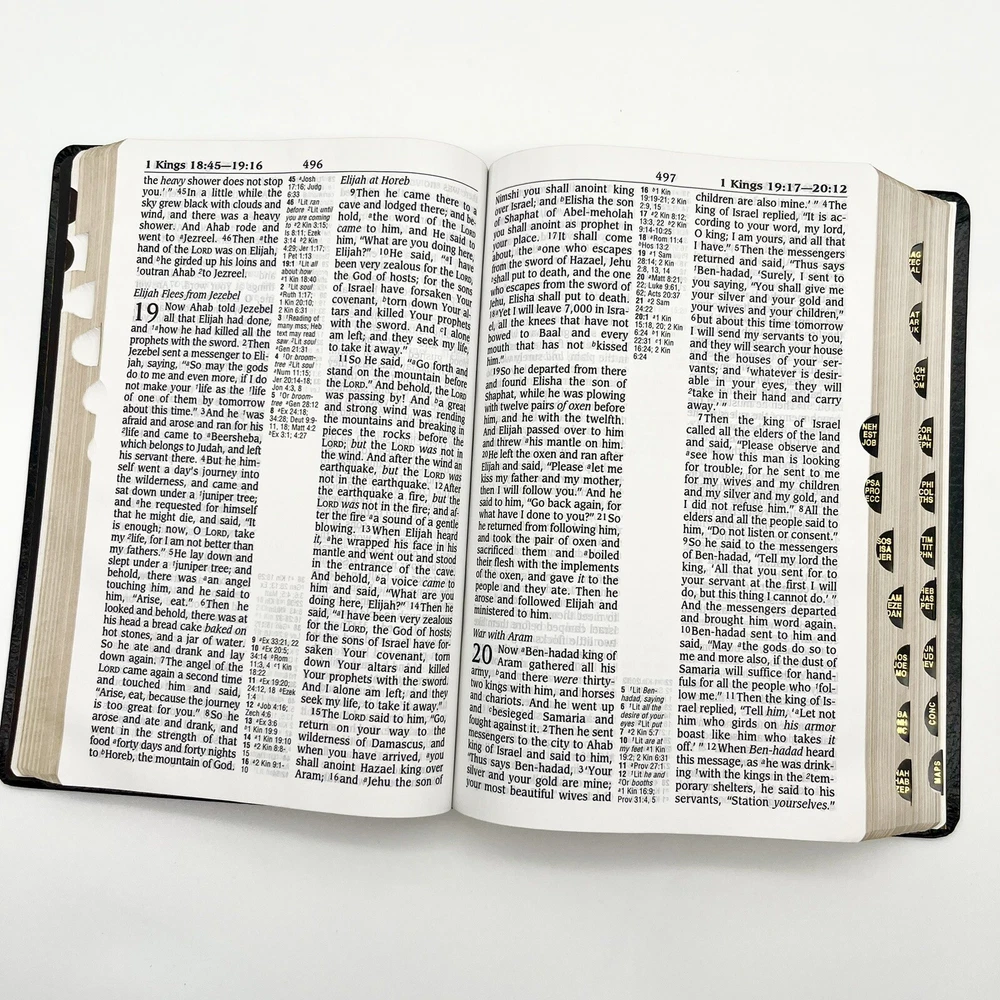 1 Kings 18:45—19:16 496
the heavy shower does not stop
you.’ ” 45In a little while the
sky grew black with clouds and
wind, and there was a heavy
shower. And Ahab rode and
went to aJezreel. 46Then athe
hand of the LORD was on Elijah,
and bhe girded up his loins and
1outran Ahab 2to Jezreel.
Elijah Flees from Jezebel
19 Now Ahab told Jezebel
all that Elijah had done
and 1ahow he had killed all the
prophets with the sword. 2Then
Jezebel sent a messenger to Eli-
jah, saying, “aSo may the gods
do to me and even more, if I do
not make your 1life as the 1life
of one of them by tomorrow
about this time.” 3And he 1was
afraid and arose and ran for his
2life and came to aBeersheba,
which belongs to Judah, and left
his servant there. 4But he him-
self went a day’s journey into
the wilderness, and came and
sat down under a 1juniper tree;
and ahe requested for himself
that he might die, and said, “It
is enough; now, O LORD, take
my 2life, for I am not better than
my fathers.” 5He lay down and
slept under a 1juniper tree; and
behold, there was aan angel
touching him, and he said to
him, “Arise, eat.” 6Then he
looked and behold, there was at
his head a bread cake baked on
hot stones, and a jar of water.
So he ate and drank and lay
down again. 7The angel of the
LORD came again a second time
and touched him and said,
“Arise, eat, because the journey
is too great for you.” 8So he
arose and ate and drank, and
went in the strength of that
food aforty days and forty nights
to bHoreb, the mountain of God.
45 aJosh
17:16; Judg
6:33
46 1Lit ran
before 2Lit until
you are coming
to a2 Kin 3:15;
Is 8:11; Ezek
3:14 b2 Kin
4:29; Jer 1:17;
1 Pet 1:13
19:1 1Lit all
about how
a1 Kin 18:40
2 1Lit soul
aRuth 1:17;
1 Kin 20:10;
2 Kin 6:31
3 1Reading of
many mss; Heb
text may read
saw 2Lit soul
aGen 21:31
4 1Or broom-
tree 2Lit soul
aNum 11:15;
Jer 20:14-18;
Jon 4:3, 8
5 1Or broom-
tree aGen 28:12
8 aEx 24:18;
34:28; Deut 9:9-
11, 18; Matt 4:2
bEx 3:1; 4:27
9 aEx 33:21, 22
10 aEx 20:5;
34:14 bRom
11:3, 4 c1 Kin
18:22
11 aEx 19:20;
24:12, 18 bEzek
1:4
12 aJob 4:16;
Zech 4:6
13 aEx 3:6
b1 Kin 19:9
14 a1 Kin 19:10
15 a2 Kin 8:8-
15
16 a2 Kin 9:1-
10
Elijah at Horeb
9Then he came there to a
cave and lodged there; and be-
hold, athe word of the LORD
came to him, and He said to
him, “What are you doing here,
Elijah?” 10He said, “aI have
been very zealous for the LORD,
the God of hosts; for the sons
of Israel have forsaken Your
covenant, btorn down Your al-
tars and killed Your prophets
with the sword. And cI alone
am left; and they seek my life,
to take it away.”
11So He said, “aGo forth and
stand on the mountain before
the LORD.” And behold, the LORD
was passing by! And ba great
and strong wind was rending
the mountains and breaking in
pieces the rocks before the
LORD; but the LORD was not in
the wind. And after the wind an
earthquake, but the LORD was
not in the earthquake. 12After
the earthquake a fire, but the
LORD was not in the fire; and af-
ter the fire aa sound of a gentle
blowing. 13When Elijah heard
it, ahe wrapped his face in his
mantle and went out and stood
in the entrance of the cave.
And behold, ba voice came to
him and said, “What are you
doing here, Elijah?” 14Then he
said, “aI have been very zealous
for the LORD, the God of hosts;
for the sons of Israel have for-
saken Your covenant, torn
down Your altars and killed
Your prophets with the sword.
And I alone am left; and they
seek my life, to take it away.”
15The LORD said to him, “Go,
return on your way to the
wilderness of Damascus, and
when you have arrived, ayou
shall anoint Hazael king over
Aram; 16and aJehu the son of
497 1 Kings 19:17—20:12
Nimshi you shall anoint king
over Israel; and bElisha the son
of Shaphat of Abel-meholah
you shall anoint as prophet in
your place. 17It shall come
about, the aone who escapes
from the sword of Hazael, Jehu
bshall put to death, and the one
who escapes from the sword of
Jehu, Elisha shall put to death.
18aYet I will leave 7,000 in Isra-
el, all the knees that have not
bowed to Baal and every
mouth that has not bkissed
him.”
19So he departed from there
and found Elisha the son of
Shaphat, while he was plowing
with twelve pairs of oxen before
him, and he with the twelfth.
And Elijah passed over to him
and threw ahis mantle on him.
20He left the oxen and ran after
Elijah and said, “Please alet me
kiss my father and my mother,
then I will follow you.” And he
said to him, “Go back again, for
what have I done to you?” 21So
he returned from following him,
and took the pair of oxen and
sacrificed them and aboiled
their flesh with the implements
of the oxen, and gave it to the
people and they ate. Then he
arose and followed Elijah and
ministered to him.
War with Aram
20 Now aBen-hadad king of
Aram gathered all his
army, band there were thirty-
two kings with him, and horses
and chariots. And he went up
and cbesieged Samaria and
fought against it. 2Then he sent
messengers to the city to Ahab
king of Israel and said to him,
“Thus says Ben-hadad, 3‘Your
silver and your gold are mine;
your most beautiful wives and
16 b1 Kin
19:19-21; 2 Kin
2:9, 15
17 a2 Kin 8:12;
13:3, 22 b2 Kin
9:14-10:25
18 aRom 11:4
bHos 13:2
19 a1 Sam
28:14; 2 Kin
2:8, 13, 14
20 aMatt 8:21,
22; Luke 9:61,
62; Acts 20:37
21 a2 Sam
24:22
20:1 a1 Kin
15:18, 20; 2 Kin
6:24 b1 Kin
22:31 c1 Kin
16:24; 2 Kin
6:24
5 1Lit Ben-
hadad, saying
6 1Lit all the
desire of your
eyes 2Lit put
7 a2 Kin 5:7
10 1Lit are at
my feet a1 Kin
19:2; 2 Kin 6:31
11 aProv 27:1
12 1Lit he and
2Or booths
a1 Kin 16:9;
Prov 31:4, 5
children are also mine.’ ” 4The
king of Israel replied, “It is ac-
cording to your word, my lord,
O king; I am yours, and all that
I have.” 5Then the messengers
returned and said, “Thus says
1Ben-hadad, ‘Surely, I sent to
you saying, “You shall give me
your silver and your gold and
your wives and your children,”
6but about this time tomorrow
I will send my servants to you,
and they will search your house
and the houses of your ser-
vants; and 1whatever is desir-
able in your eyes, they will
2take in their hand and carry
away.’ ”
7Then the king of Israel
called all the elders of the land
and said, “Please observe and
asee how this man is looking
for trouble; for he sent to me
for my wives and my children
and my silver and my gold, and
I did not refuse him.” 8All the
elders and all the people said to
him, “Do not listen or consent.”
9So he said to the messengers
of Ben-hadad, “Tell my lord the
king, ‘All that you sent for to
your servant at the first I will
do, but this thing I cannot do.’ ”
And the messengers departed
and brought him word again.
10Ben-hadad sent to him and
said, “May athe gods do so to
me and more also, if the dust of
Samaria will suffice for hand-
fuls for all the people who 1fol-
low me.” 11Then the king of Is-
rael replied, “Tell him, ‘aLet not
him who girds on his armor
boast like him who takes it
off.’ ” 12When Ben-hadad heard
this message, as ahe was drink-
ing 1with the kings in the 2tem-
porary shelters, he said to his
servants, “Station yourselves.”
NEH
EST
JOB
PSA
PRO
ECC
SOS
ISA
JER
LAM
EZE
DAN
COR
GAL
EPH
PHI
COL
THS
TIM
TIT
PHN
HEB
JAS
PET
CONC
MAPS